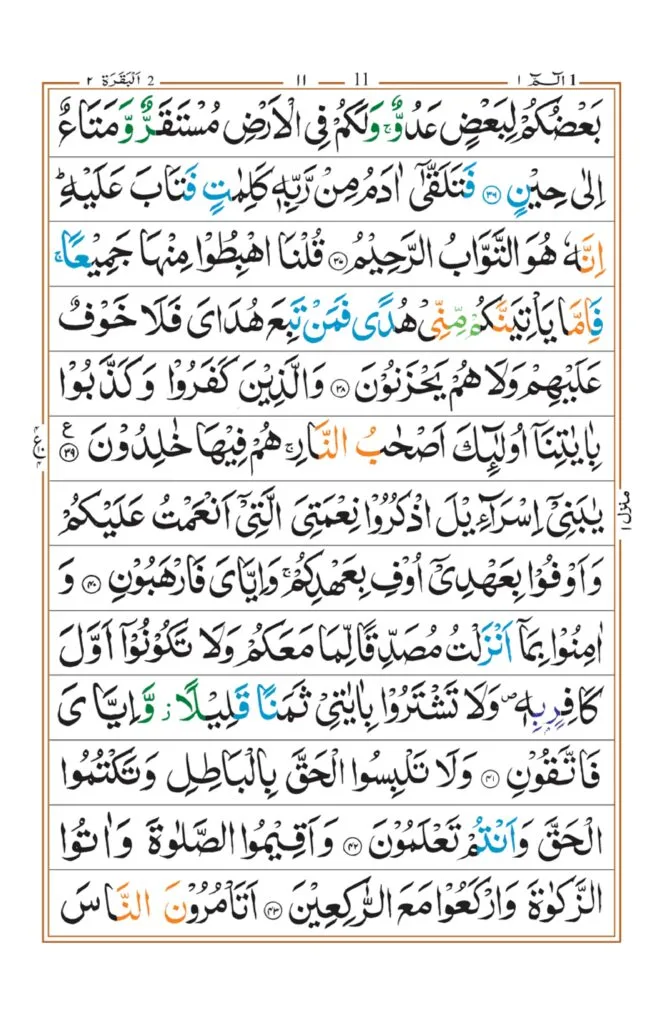 الٓمّٓ ١ 1 11 ١١ 2 اَلْبَقَرَة ٢
بَعْضُكُمْ لِبَعْضٍ عَدُوٌّ ۚ وَلَكُمْ فِی الْاَرْضِ مُسْتَقَرٌّ وَّمَتَاعٌ
اِلٰی حِیْنٍ ﴿۳۶﴾ فَتَلَقّٰۤی اٰدَمُ مِنْ رَّبِّهٖ كَلِمٰتٍ فَتَابَ عَلَیْهِ ؕ
اِنَّهٗ هُوَ التَّوَّابُ الرَّحِیْمُ ﴿۳۷﴾ قُلْنَا اهْبِطُوْا مِنْهَا جَمِیْعًا ۚ
فَاِمَّا یَاْتِیَنَّكُمْ مِّنِّیْ هُدًی فَمَنْ تَبِعَ هُدَایَ فَلَا خَوْفٌ
عَلَیْهِمْ وَلَا هُمْ یَحْزَنُوْنَ ﴿۳۸﴾ وَالَّذِیْنَ كَفَرُوْا وَكَذَّبُوْا
بِاٰیٰتِنَاۤ اُولٰٓىِٕكَ اَصْحٰبُ النَّارِ ۚ هُمْ فِیْهَا خٰلِدُوْنَ ﴿۳۹﴾ ع
یٰبَنِیْۤ اِسْرَآءِیْلَ اذْكُرُوْا نِعْمَتِیَ الَّتِیْۤ اَنْعَمْتُ عَلَیْكُمْ
وَاَوْفُوْا بِعَهْدِیْۤ اُوْفِ بِعَهْدِكُمْ ۚ وَاِیَّایَ فَارْهَبُوْنِ ﴿۴۰﴾ وَ
اٰمِنُوْا بِمَاۤ اَنْزَلْتُ مُصَدِّقًا لِّمَا مَعَكُمْ وَلَا تَكُوْنُوْۤا اَوَّلَ
كَافِرٍۭ بِهٖ ۪ وَلَا تَشْتَرُوْا بِاٰیٰتِیْ ثَمَنًا قَلِیْلًا ؗ وَّاِیَّایَ
فَاتَّقُوْنِ ﴿۴۱﴾ وَلَا تَلْبِسُوا الْحَقَّ بِالْبَاطِلِ وَتَكْتُمُوا
الْحَقَّ وَاَنْتُمْ تَعْلَمُوْنَ ﴿۴۲﴾ وَاَقِیْمُوا الصَّلٰوةَ وَاٰتُوا
الزَّكٰوةَ وَارْكَعُوْا مَعَ الرّٰكِعِیْنَ ﴿۴۳﴾ اَتَاْمُرُوْنَ النَّاسَ
منزل ١